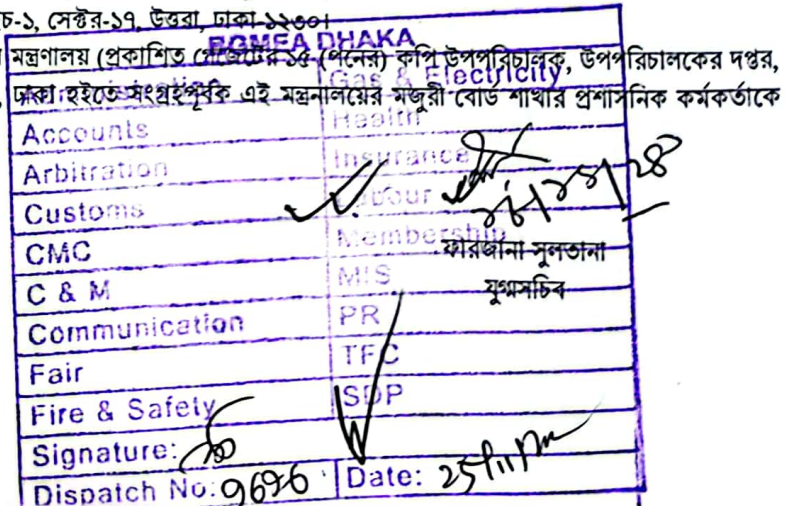 চ-১, সেক্টর-১৭, উত্তরা, ঢাকা-১২৩০।
মন্ত্রণালয় (প্রকাশিত গেজেটের ১৫ (পনের) কপি উপপরিচালক, উপপরিচালকের দপ্তর,
ঢাকা হইতে সংগ্রহপূর্বক এই মন্ত্রনালয়ের মজুরী বোর্ড শাখার প্রশাসনিক কর্মকর্তাকে
BGMEA DHAKA
Gas & Electricity
Accounts Health
Arbitration Insurance
Customs Labour
CMC Membership
ফারজানা সুলতানা
C & M MIS
যুগ্মসচিব
Communication PR
Fair TFC
Fire & Safety SDP
Signature:
Dispatch No: Date: